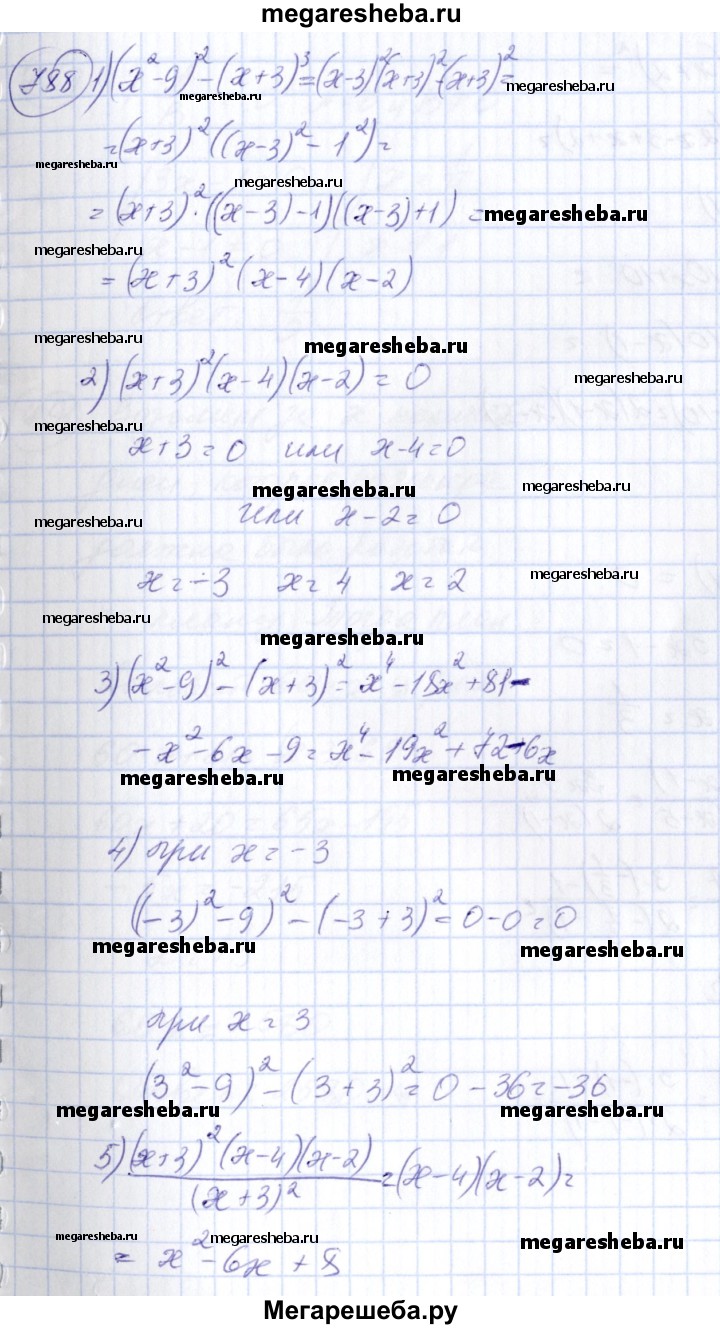 megaresheba.ru
788 1) (x²-9)²-(x+3)³=(x-3)²(x+3)²-(x+3)²=
megaresheba.ru
megaresheba.ru
=(x+3)²((x-3)²-1²)=
megaresheba.ru
megaresheba.ru
=(x+3)²·((x-3)-1)((x-3)+1)=
megaresheba.ru
megaresheba.ru
=(x+3)²(x-4)(x-2)
megaresheba.ru
megaresheba.ru
2) (x+3)²(x-4)(x-2)=0
megaresheba.ru
megaresheba.ru
x+3=0 или x-4=0
megaresheba.ru
megaresheba.ru
или x-2=0
megaresheba.ru
x=-3 x=4 x=2
megaresheba.ru
megaresheba.ru
megaresheba.ru
3) (x²-9)²-(x+3)²=x⁴-18x²+81-
-x²-6x-9=x⁴-19x²+72-6x
megaresheba.ru
megaresheba.ru
4) при x=-3
((-3)²-9)²-(-3+3)²=0-0=0
megaresheba.ru
megaresheba.ru
при x=3
(3²-9)²-(3+3)²=0-36=-36
megaresheba.ru
megaresheba.ru
5) (x+3)²(x-4)(x-2)/(x+3)²=(x-4)(x-2)=
megaresheba.ru
megaresheba.ru
megaresheba.ru
=x²-6x+8
Мегарешеба.ру